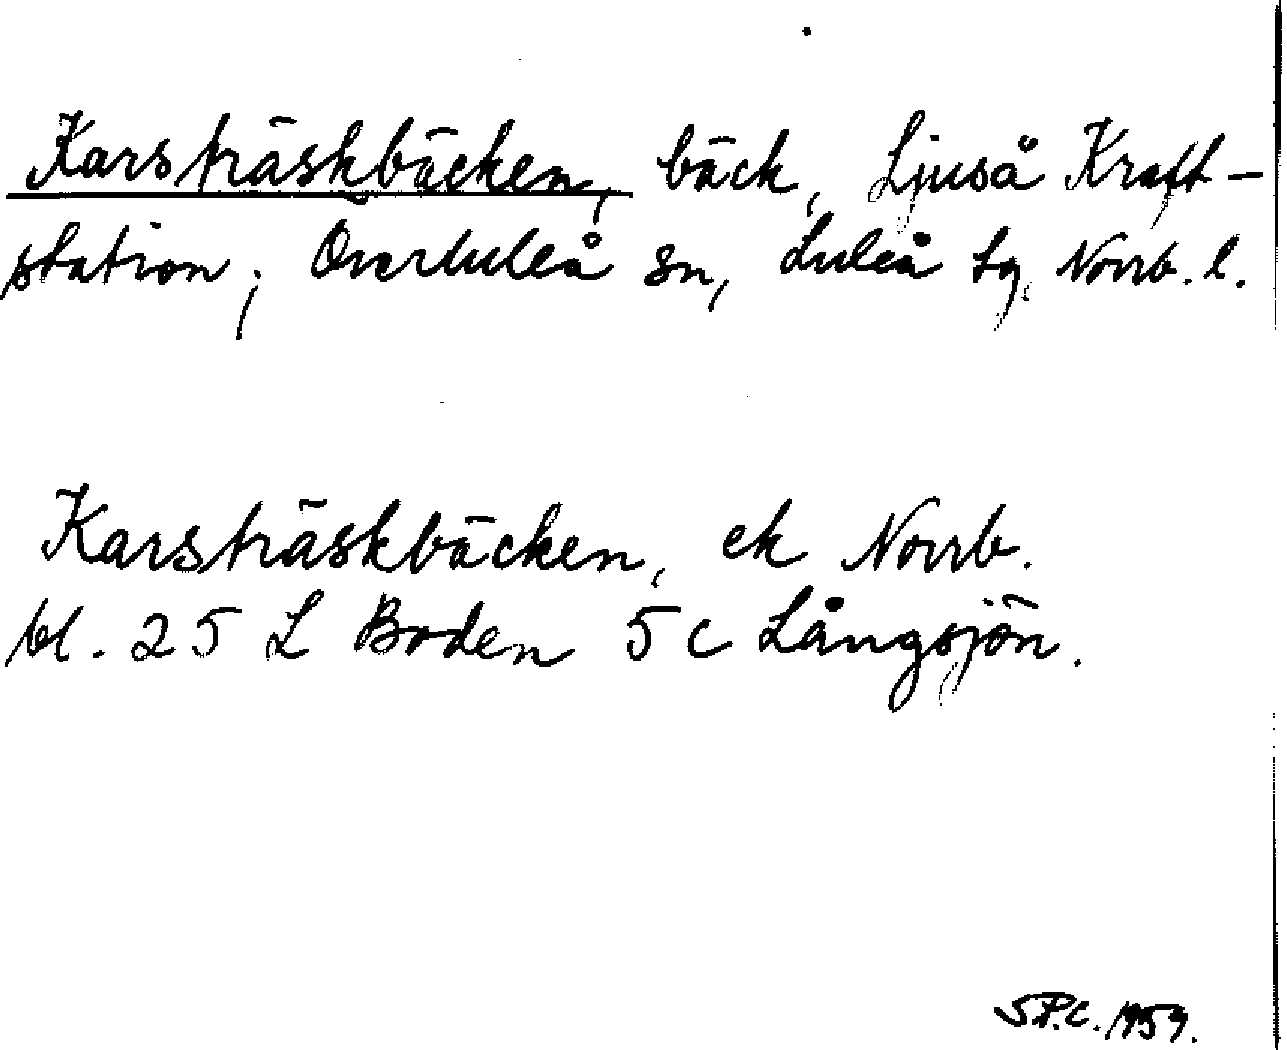 Karsträskbäcken, bäck, Ljuså Kraft-
station; Överluleå sn, Luleå tg, Norrb. l.
Karsträskbäcken, ek Norrb.
bl. 25 L Boden 5 c Långsjön.
S.P.C. 1959.